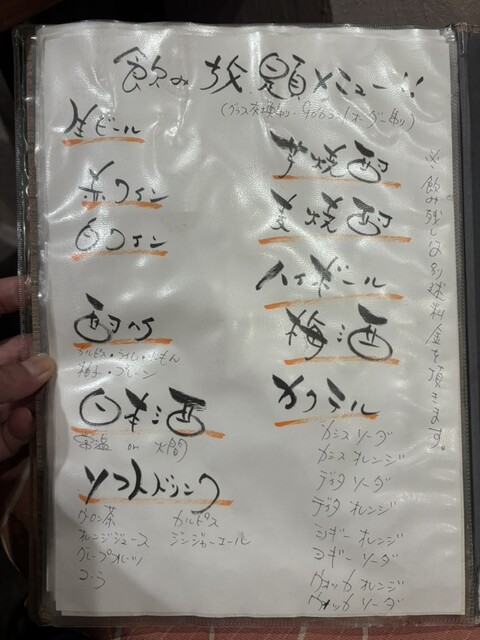 飲み放題メニュー!!
(グラス交換制り・90分ラストオーダー制り)
生ビール
赤ワイン
白ワイン
酎ハイ
カルピス・ライム・レモン
日本酒
常温 or 火間
ソフトドリンク
ウーロン茶
オレンジジュース
グレープフルーツ
コーラ
カルピス
ジンジャーエール
芋焼酎
麦焼酎
ハイボール
梅酒
カクテル
カシス ソーダ
カシス オレンジ
ディタ ソーダ
ディタ オレンジ
ジギー オレンジ
ヨギー ソーダ
ウォッカ オレンジ
ウォッカ ソーダ
※飲み残しは別途料金を頂きます。